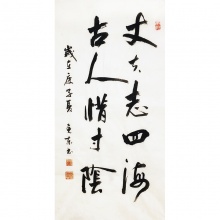 丈夫志四海
古人惜寸陰
歲在庚子夏